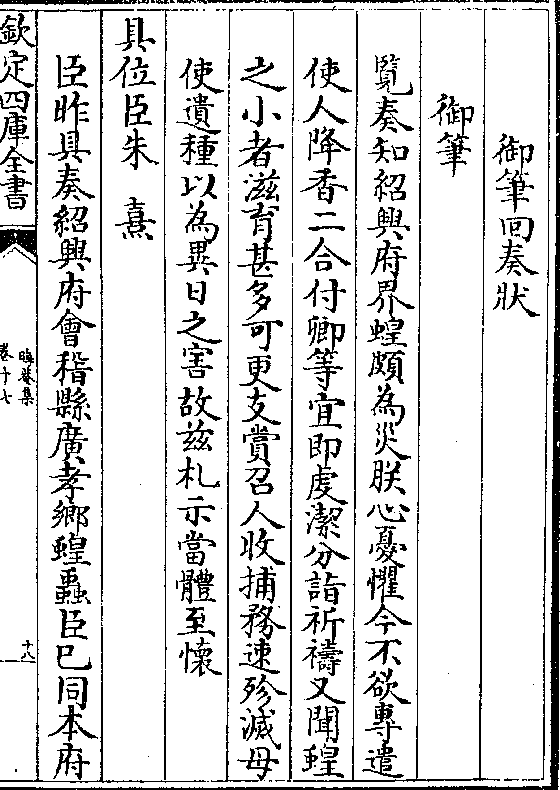 御筆回奏狀
御筆
覽奏知紹興府界蝗頗為災朕心憂懼今不欲專遣
使人降香二合付卿等宜即虔潔分詣祈禱又聞蝗
之小者滋育甚多可更支賞召人收捕務速殄滅母
使遺種以為異日之害故兹札示當體至懷
具位臣朱熹
臣昨具奏紹興府會稽縣廣孝鄉蝗蟲臣已同本府
欽定四庫全書
晦菴集
卷十七
十八